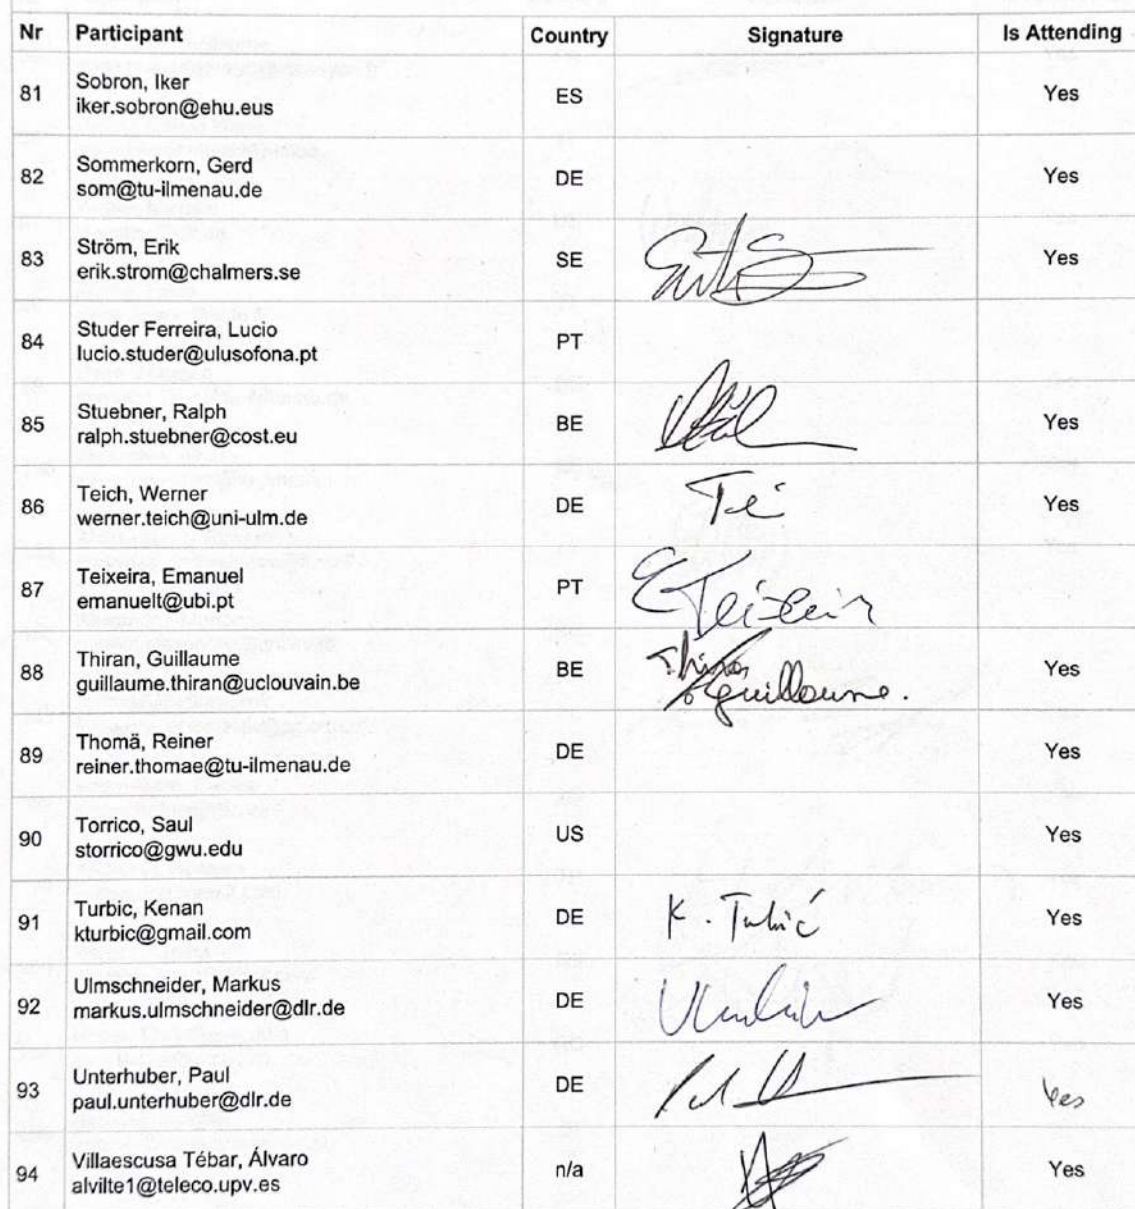 Nr Participant Country Signature Is Attending
81 Sobron, Iker
iker.sobron@ehu.eus ES Yes
82 Sommerkorn, Gerd
som@tu-ilmenau.de DE Yes
83 Ström, Erik
erik.strom@chalmers.se SE Yes
84 Studer Ferreira, Lucio
lucio.studer@ulusofona.pt PT
85 Stuebner, Ralph
ralph.stuebner@cost.eu BE Yes
86 Teich, Werner
werner.teich@uni-ulm.de DE Yes
87 Teixeira, Emanuel
emanuelt@ubi.pt PT
88 Thiran, Guillaume
guillaume.thiran@uclouvain.be BE Guillaume. Yes
89 Thomä, Reiner
reiner.thomae@tu-ilmenau.de DE Yes
90 Torrico, Saul
storrico@gwu.edu US Yes
91 Turbic, Kenan
kturbic@gmail.com DE K. Turbić Yes
92 Ulmschneider, Markus
markus.ulmschneider@dlr.de DE Yes
93 Unterhuber, Paul
paul.unterhuber@dlr.de DE Yes
94 Villaescusa Tébar, Álvaro
alvilte1@teleco.upv.es n/a Yes